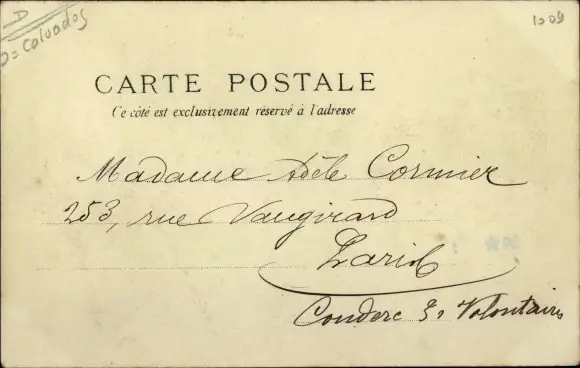 D
D = Calvados
1009
CARTE POSTALE
Ce côté est exclusivement réservé à l'adresse
Madame Adèle Cormier
253, rue Vaugirard
Paris
Couderc Volontaire